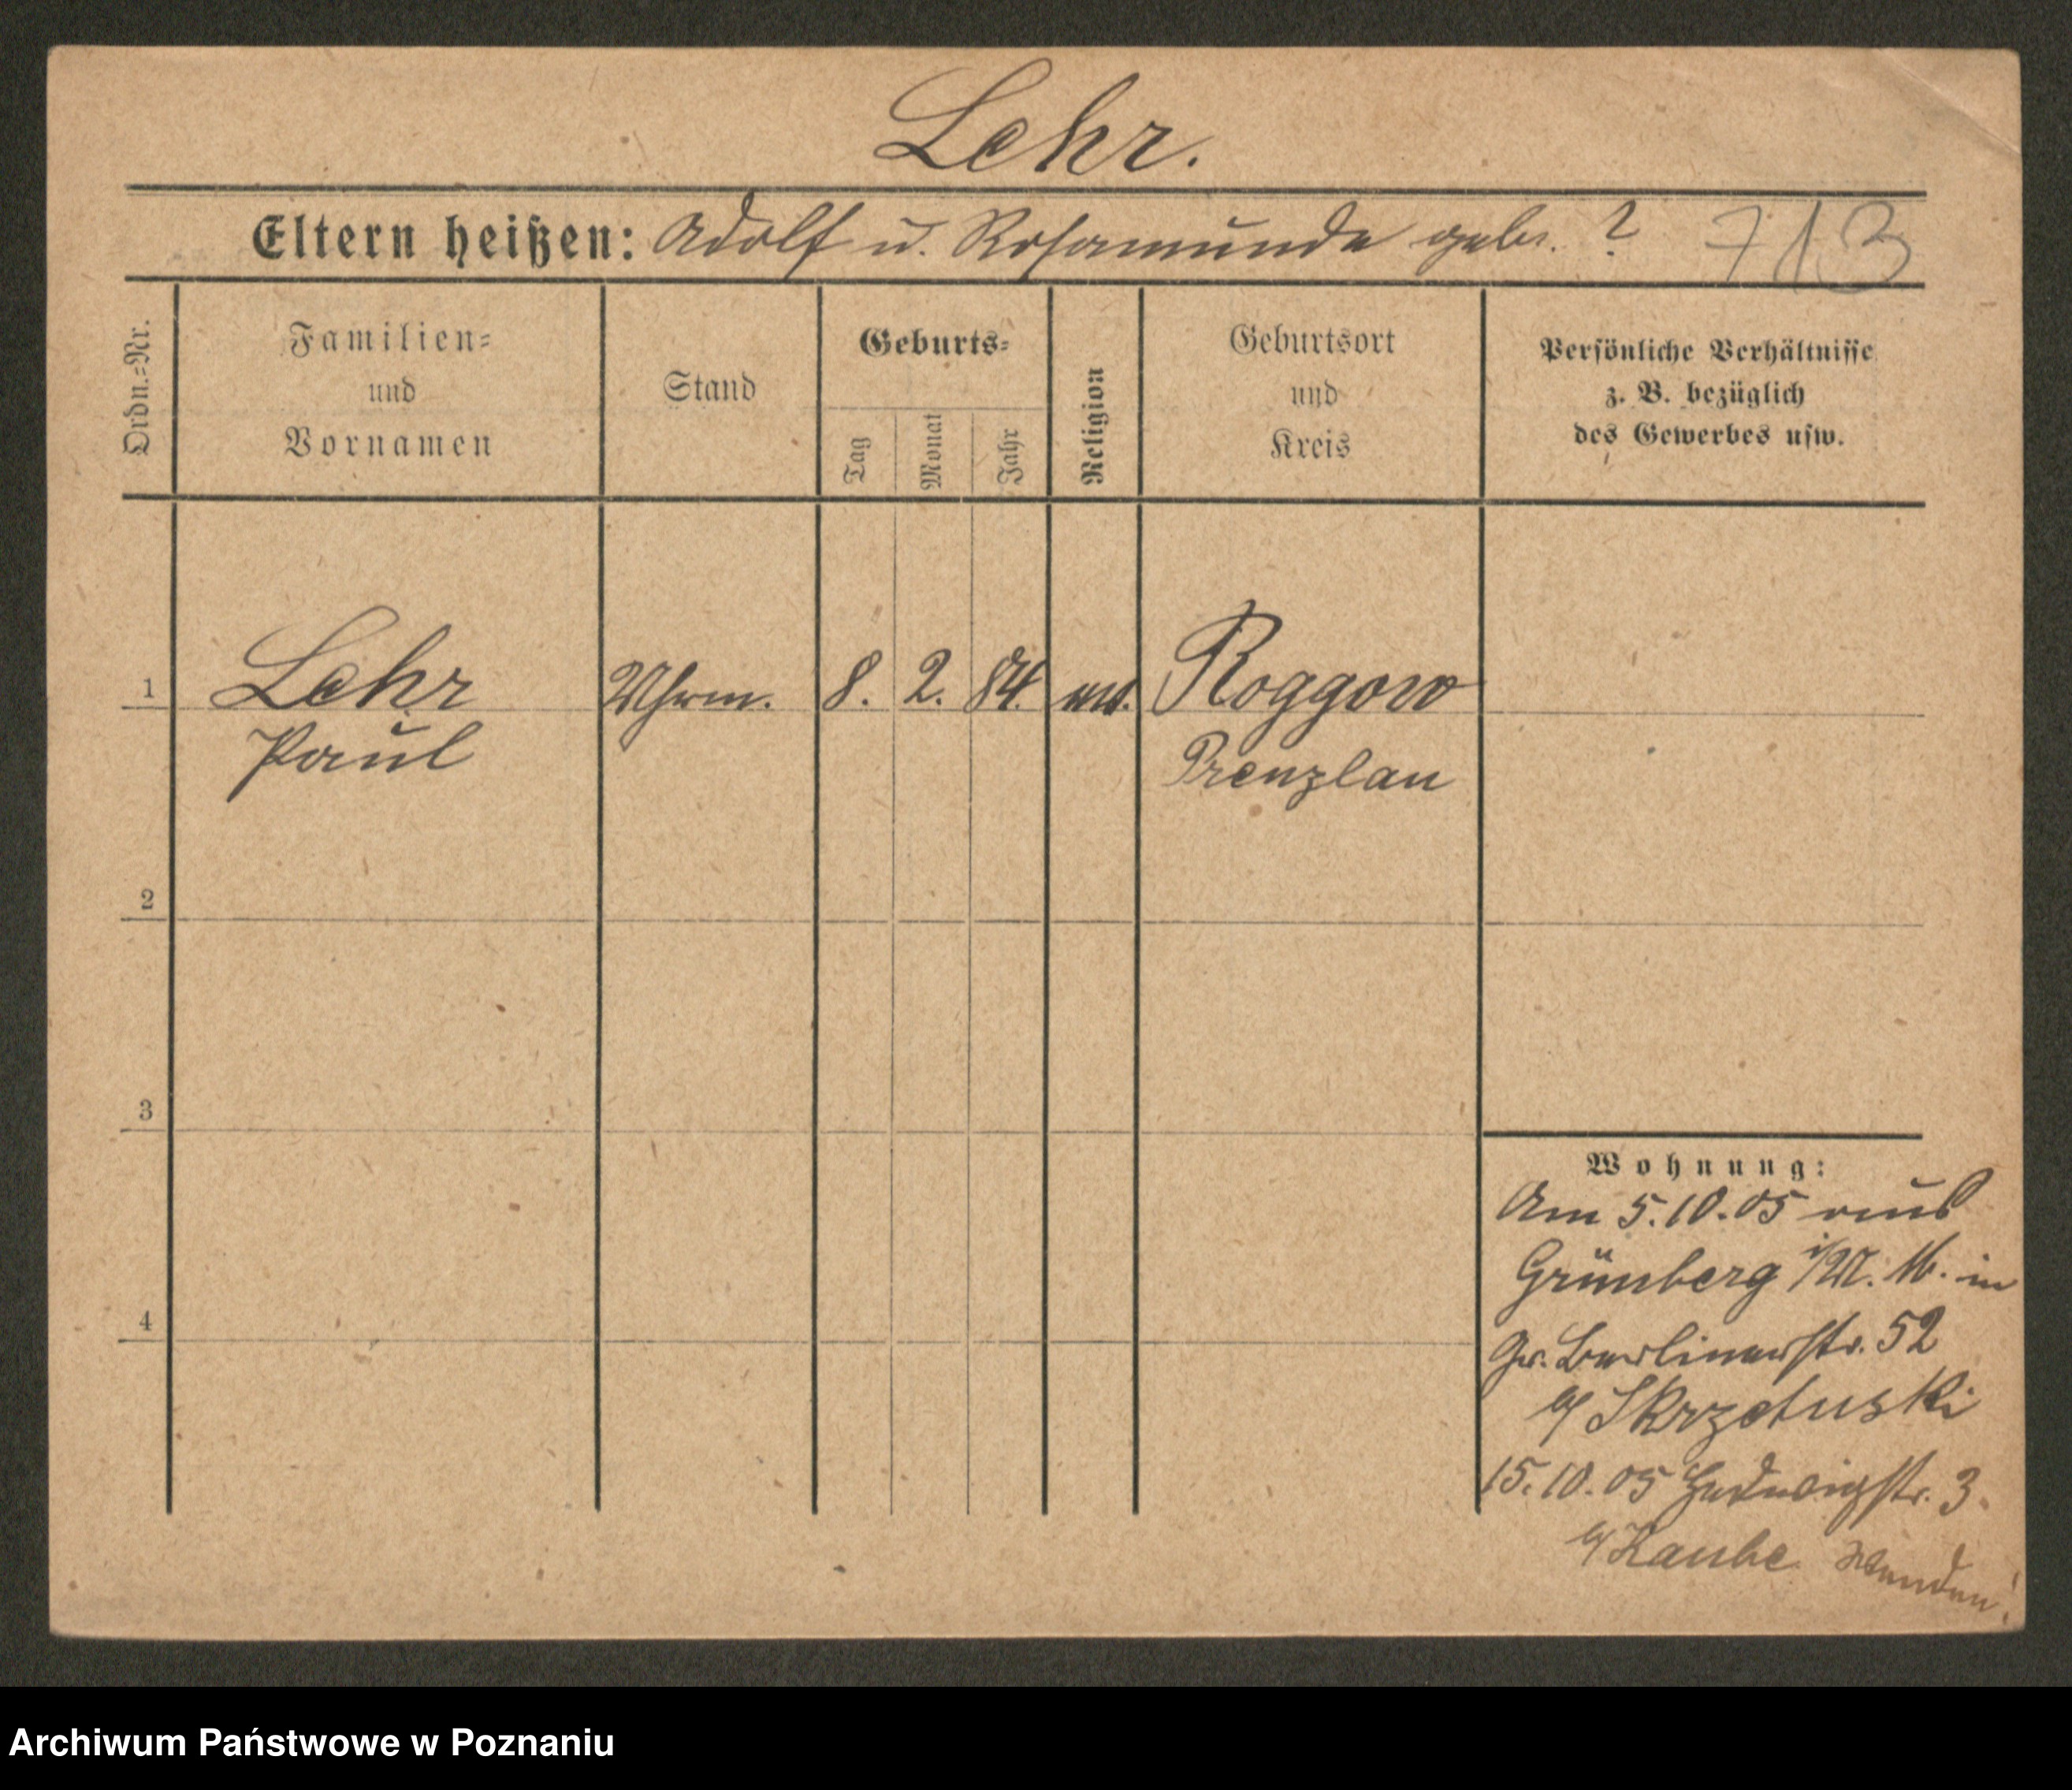 Lehr.
Eltern heißen: Adolf u. Rosamunde geb. ? 713
Ordn.=Nr.
Familien=
und
Vornamen
Stand
Geburts=
Tag
Monat
Jahr
Religion
Geburtsort
und
Kreis
Persönliche Verhältnisse
z. B. bezüglich
des Gewerbes usw.
1 Lehr Uhrm. 8. 2. 84. ev. Roggow
Paul Prenzlau
2
3
4
Wohnung:
Am 5.10.05 aus
Grünberg i/M. 16. in
Gr. Berlinerstr. 52
b/ Skrzetuski
15.10.05 Hedwigstr. 3.
b/ Kaube Wenden!
Archiwum Państwowe w Poznaniu